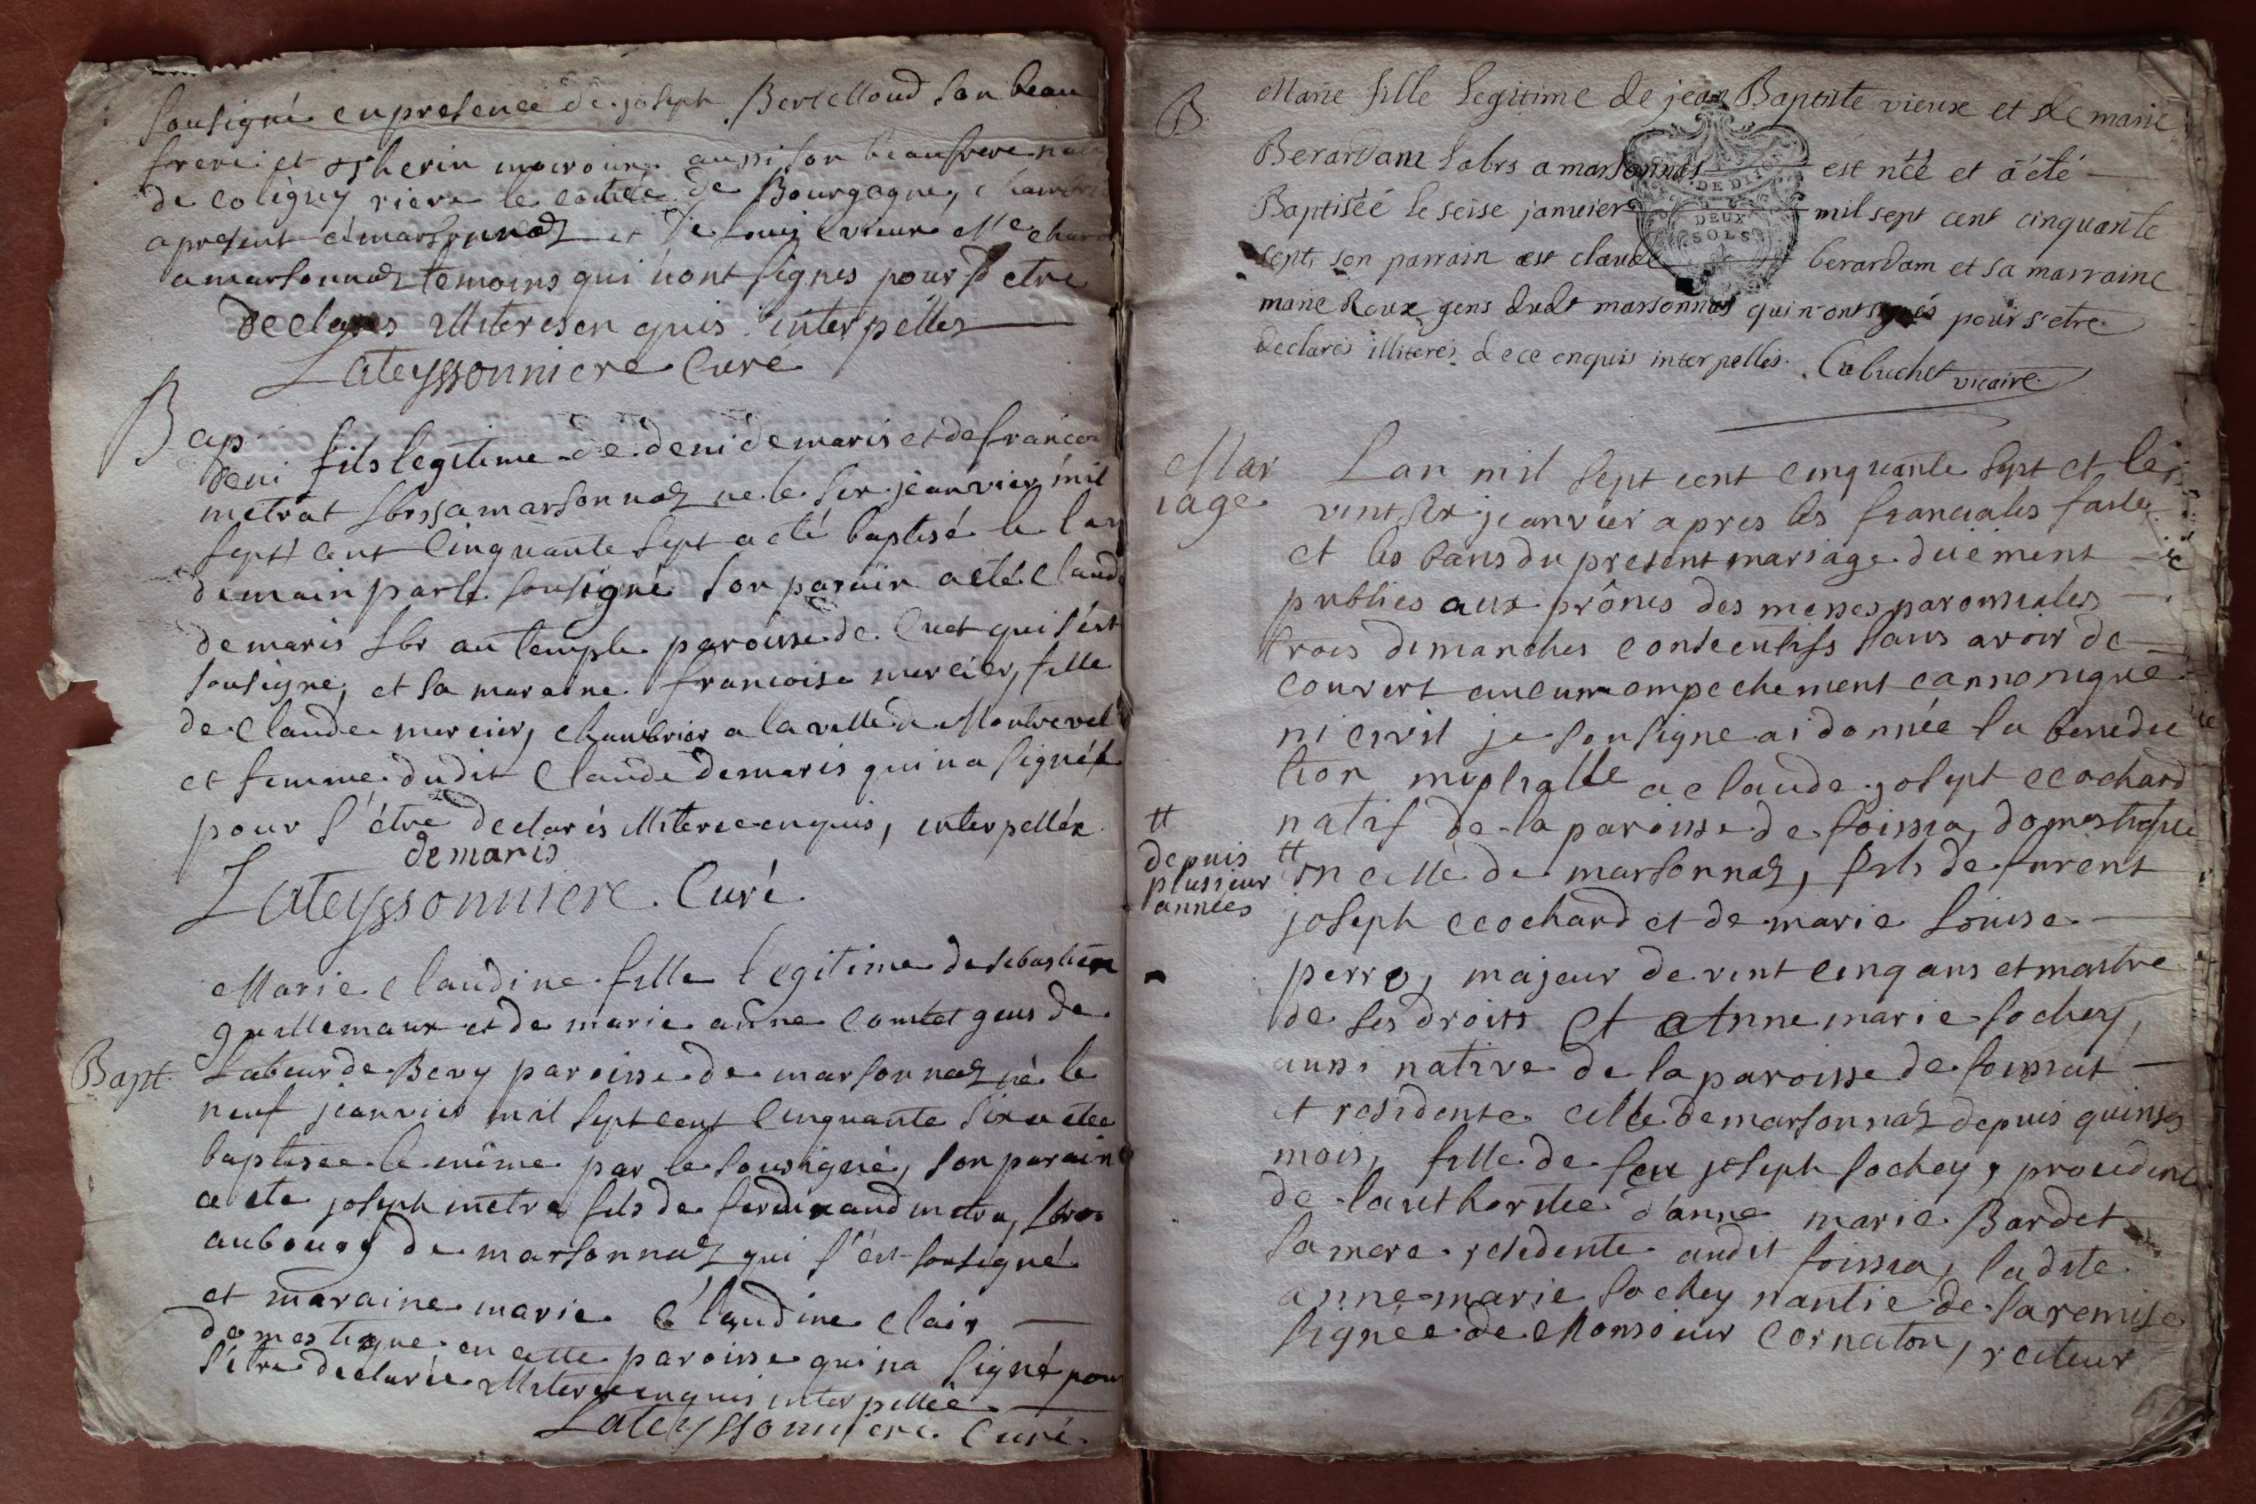 sousigné en presence de joseph Bertelloud son beau
frere et therin aussi son beaufrere
de coligny riere le comté de Bourgogne,
a present a marsonnaz et de
a marsonnaz temoins qui nont signes pour s etre
declares illiteres en quis interpelles
Lateyssonniere Curé
Bap
deni fils legitime de deni demaris et de francoi
metrat lbrs a marsonnaz ne le six jeanvier mil
sept cent Cinquante sept a eté baptisé le len
demain par le sousigné son parain a eté claude
demaris lbr au temple paroisse de Cuet qui s'est
sousigne, et sa maraine francoise mercier, fille
de claude mercier, a la ville de Montrevel
et femme dudit Claude demaris qui na signée
pour s'étre declarés illiteree enquis, interpellée
demaris
Lateyssonniere. Curé.
Marie claudine fille legitime de sebastien
guillemaux et de marie anne comtet gens de
Bapt
Labeur de Bevy paroisse de marsonnaz né le
neuf jeanvier mil sept cent Cinquante six a etee
baptisee le même par le sousigné, son parain
a ete joseph metra fils de ferdinand metra, lbr
au bourg de marsonnaz qui s'ést sousigné
et maraine marie Claudine clair
domestique en cette paroisse qui na signé pour
s'étre declarée illiteree enquis interpellée
Lateyssonniere Curé.
B
Marie fille legitime de jean Baptiste vieux et de marie
Berardam labrs a marsonnas est néé et a été
DE DIJON
Baptiséé le seise janvier mil sept cent cinquante
DEUX
SOLS
sept, son parrain est claude berardam et sa marraine
marie Roux gens dudt marsonnas qui n'ont signés pour s'etre
declarés illiterés de ce enquis interpellés. Cabuchet vicaire
Mar
iage
Lan mil sept cent cinquante sept et le
vint six jeanvier apres les fiancailles faites
et les bans du present mariage duement
publies aux prônes des messes paroissiales
trois dimanches consecutifs sans avoir de
couvert aucun empechement cannonique
ni civil je sousigne ai donnée la benedic
tion nuptialle a claude josept cochard
natif de la paroisse de foissia, domestique
tt
depuis
plusieur
années
tt
en celle de marsonnaz, fils de furent
joseph cochard et de marie louise
perro, majeur de vint cinq ans et maitre
de ses droits et Anne marie sochey,
aussi native de la paroisse de foissiat
et residente celle de marsonnaz depuis quinse
mois, fille de feu joseph sochey, procédent
de lauthoritée d'anne marie Bardet
sa mere residente audit foissia, ladite
anne marie sochey nantie de sa remise
signée de Monsieur Cornaton, recteur